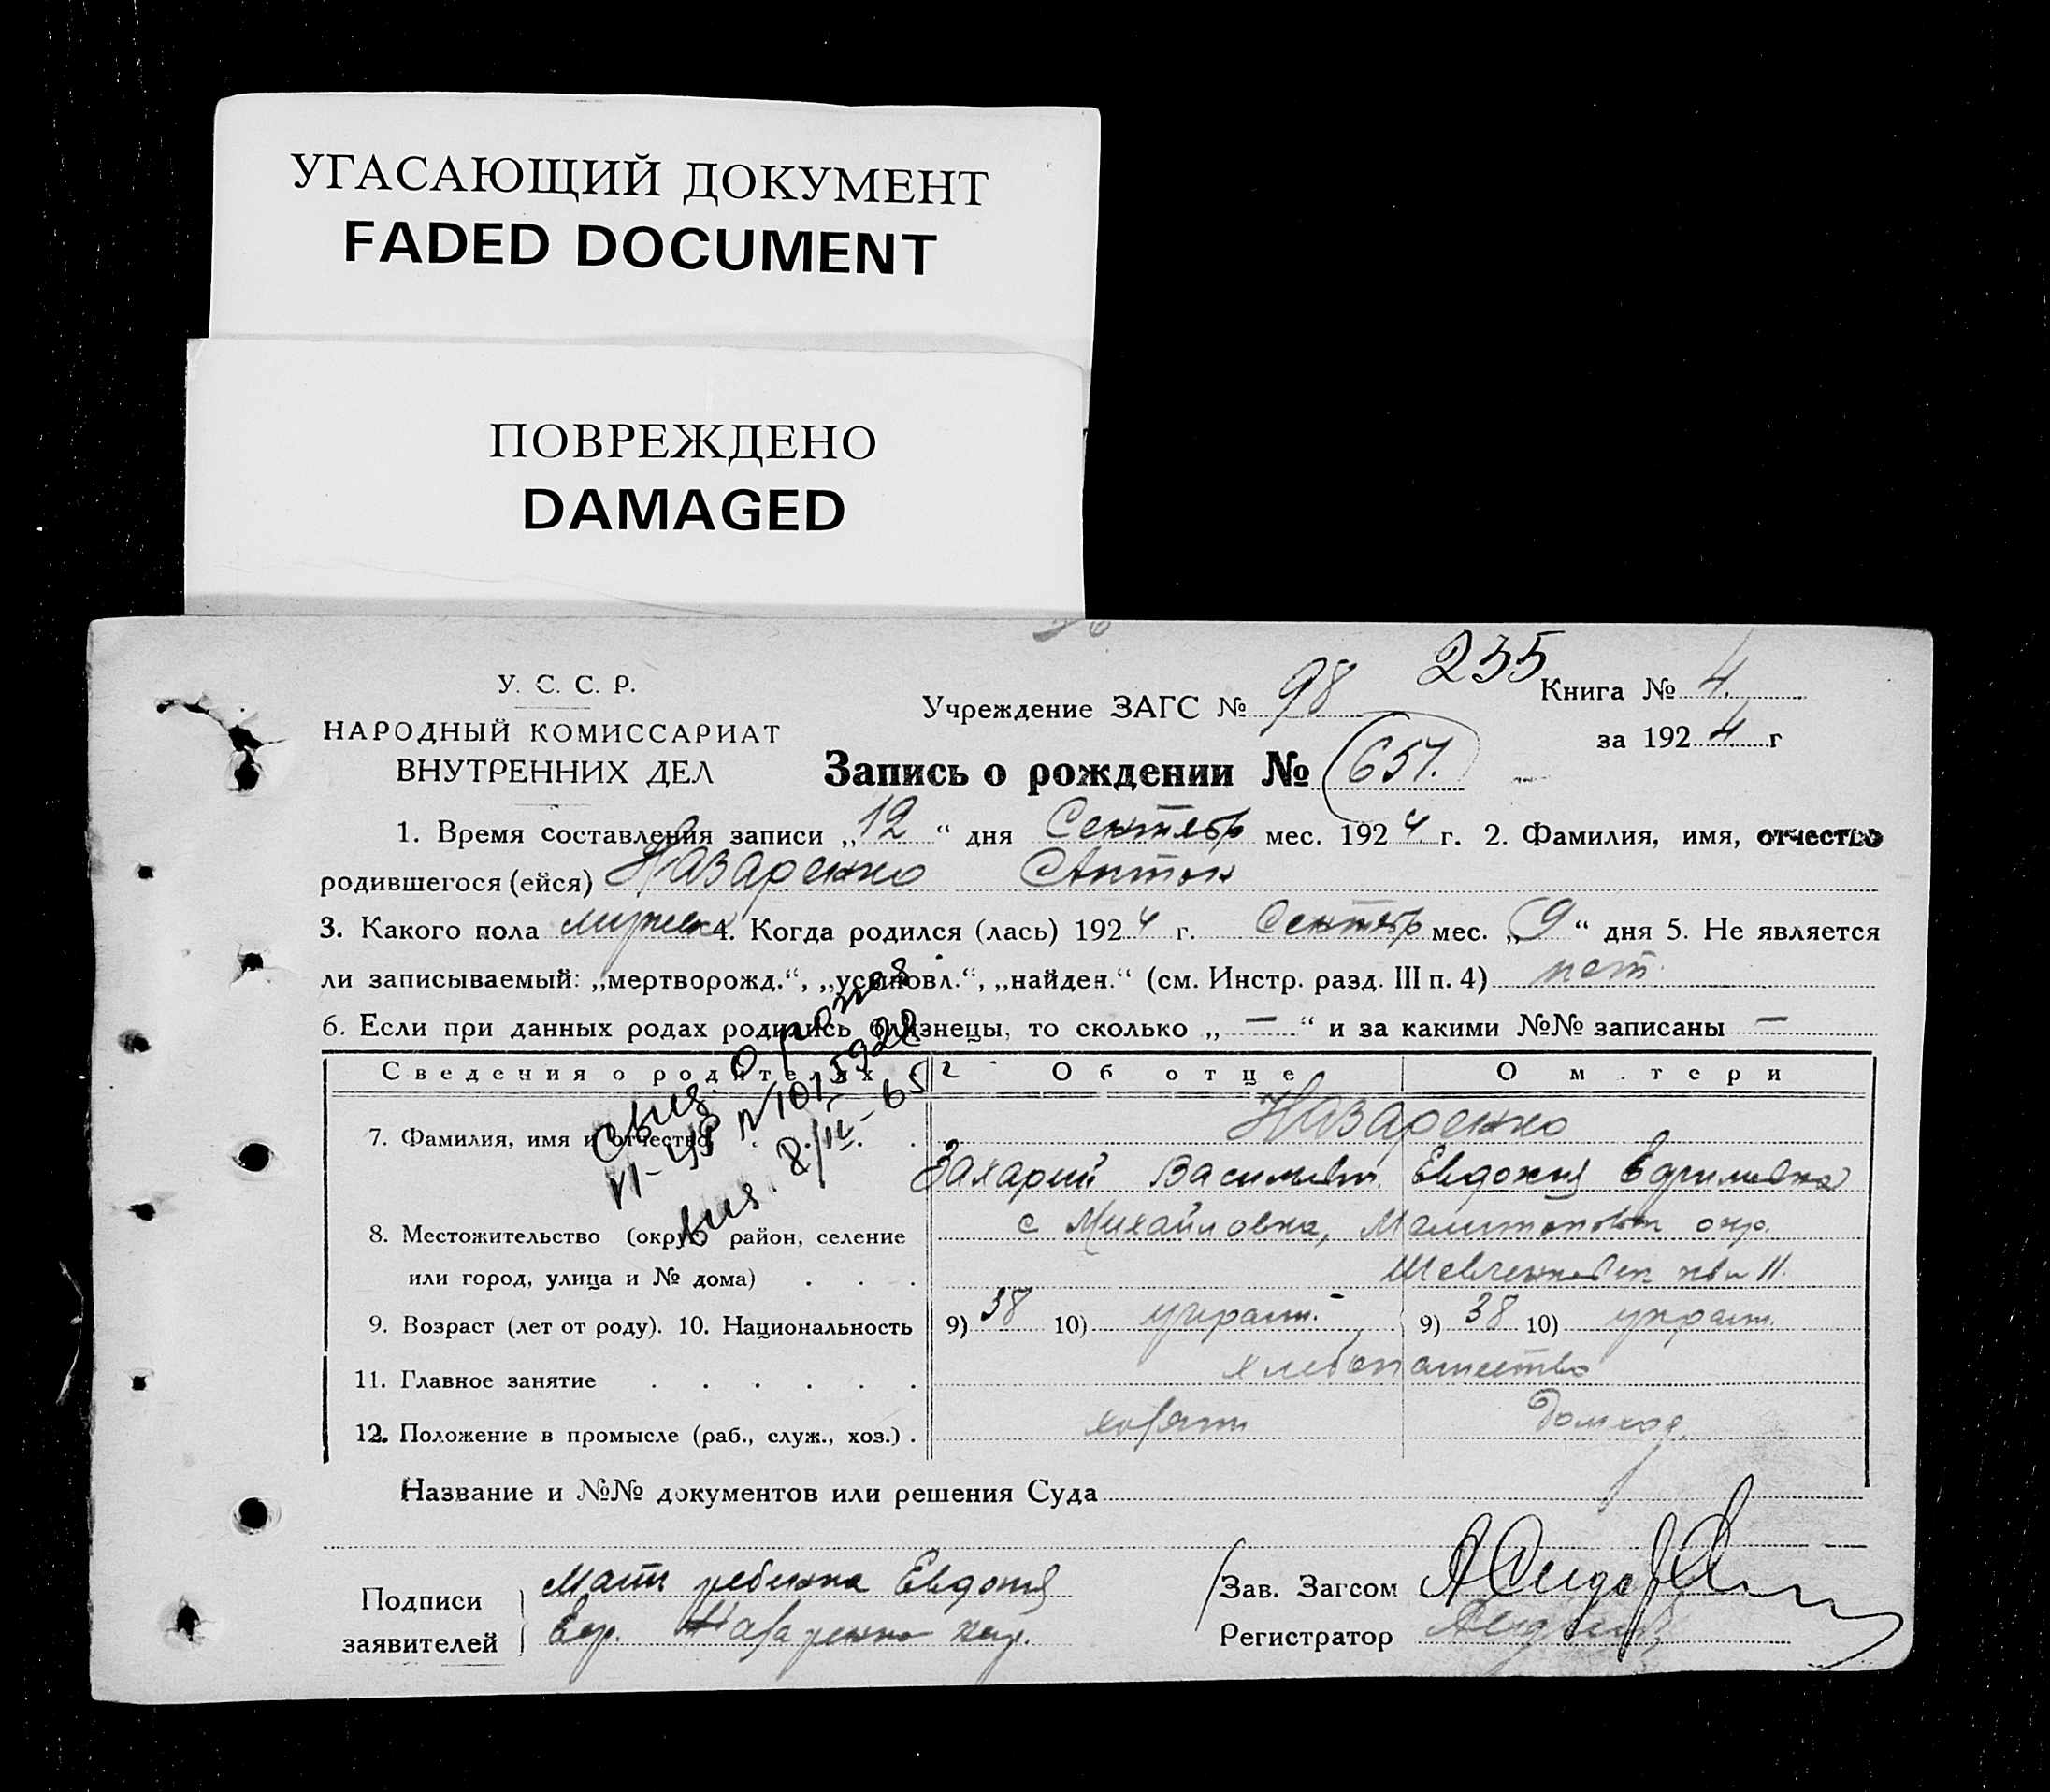 УГАСАЮЩИЙ ДОКУМЕНТ
FADED DOCUMENT
ПОВРЕЖДЕНО
DAMAGED
235
У. С. С. Р.
НАРОДНЫЙ КОМИССАРИАТ
ВНУТРЕННИХ ДЕЛ
Учреждение ЗАГС № 98
Книга № 4.
за 1924 г
Запись о рождении № 651.
1. Время составления записи „12“ дня Сентябр мес. 1924 г. 2. Фамилия, имя, отчество
родившегося (ейся) Назаренко Антон
3. Какого пола мужск 4. Когда родился (лась) 1924 г. Сентябр мес. „9“ дня 5. Не является
ли записываемый: „мертворожд.“, „усыновл.“, „найден.“ (см. Инстр. разд. III п. 4) нет
6. Если при данных родах родились близнецы, то сколько „—“ и за какими №№ записаны —
Сведения о родителях
Об отце
О матери
7. Фамилия, имя и отчество
Назаренко
Захарий Васильев.
Евдокия Ефимовна
8. Местожительство (округ, район, селение
или город, улица и № дома)
с Михайловка, Мелитопольск окр.
11.
9. Возраст (лет от роду). 10. Национальность
9) 38 10) украин.
9) 38 10) украин.
11. Главное занятие
хлебопашество
12. Положение в промысле (раб., служ., хоз.)
хозяин
домхоз.
Свид. о рожд
8/IV-65 г
Название и №№ документов или решения Суда
Подписи
заявителей
Мать ребенка Евдокия
Назаренко
Зав. Загсом
Регистратор